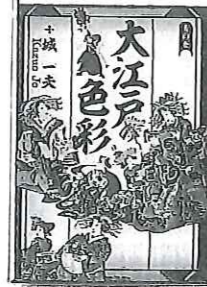 大江戸
色彩
城 一夫
Kazuo Jo